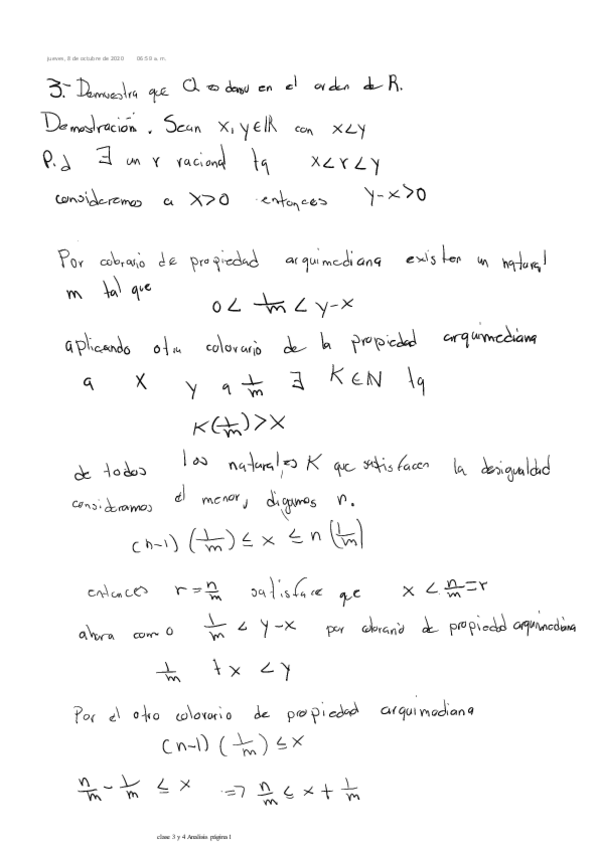 jueves, 8 de octubre de 2020 06:59 a. m.
3.- Demuestra que Q es denso en el orden de R.
Demostración. Sean x, y ∈ ℝ con x<y
P.d ∃ un r racional tq x<r<y
consideremos a x>0 entonces y-x>0
Por colorario de propiedad arquimediana existen un natural
m tal que
0 < 1/m < y-x
aplicando otro colorario de la propiedad arquimediana
a x y a 1/m ∃ K∈ℕ tq
K(1/m)>x
de todos los naturales K que satisfacen la desigualdad
consideramos el menor, digamos n.
(n-1) (1/m) ≤ x ≤ n (1/m)
entonces r = n/m satisface que x < n/m = r
ahora como 1/m < y-x por colorario de propiedad arquimediana
1/m + x < y
Por el otro colorario de propiedad arquimediana
(n-1) (1/m) ≤ x
n/m - 1/m ≤ x => n/m ≤ x + 1/m
clase 3 y 4 Análisis página 1